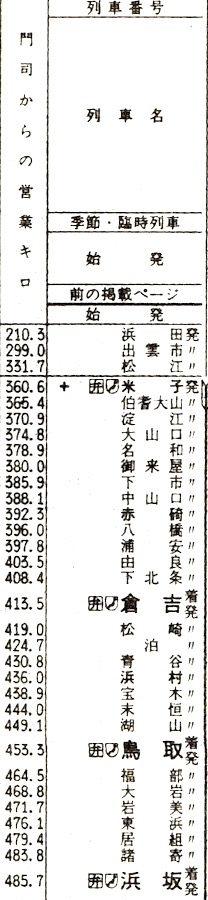 列車番号
門司からの営業キロ
列車名
季節・臨時列車
始発
前の掲載ページ
始発
210.3 浜田発
299.0 出雲市〃
331.7 松江〃
360.6 + 弁 米子発
365.4 伯耆大山〃
370.9 淀江〃
374.8 大山口〃
378.9 名和〃
380.0 御来屋〃
385.9 下市〃
388.1 中山口〃
392.3 赤碕〃
396.0 八橋〃
397.8 浦安〃
403.5 由良〃
408.4 下北条〃
413.5 弁 倉吉着発
419.0 松崎〃
424.7 泊〃
430.8 青谷〃
436.0 浜村〃
438.9 宝木〃
444.0 末恒〃
449.1 湖山〃
453.3 弁 鳥取着発
464.5 福部〃
468.8 大岩〃
471.7 岩美〃
476.1 東浜〃
479.4 居組〃
483.8 諸寄〃
485.7 弁 浜坂着発